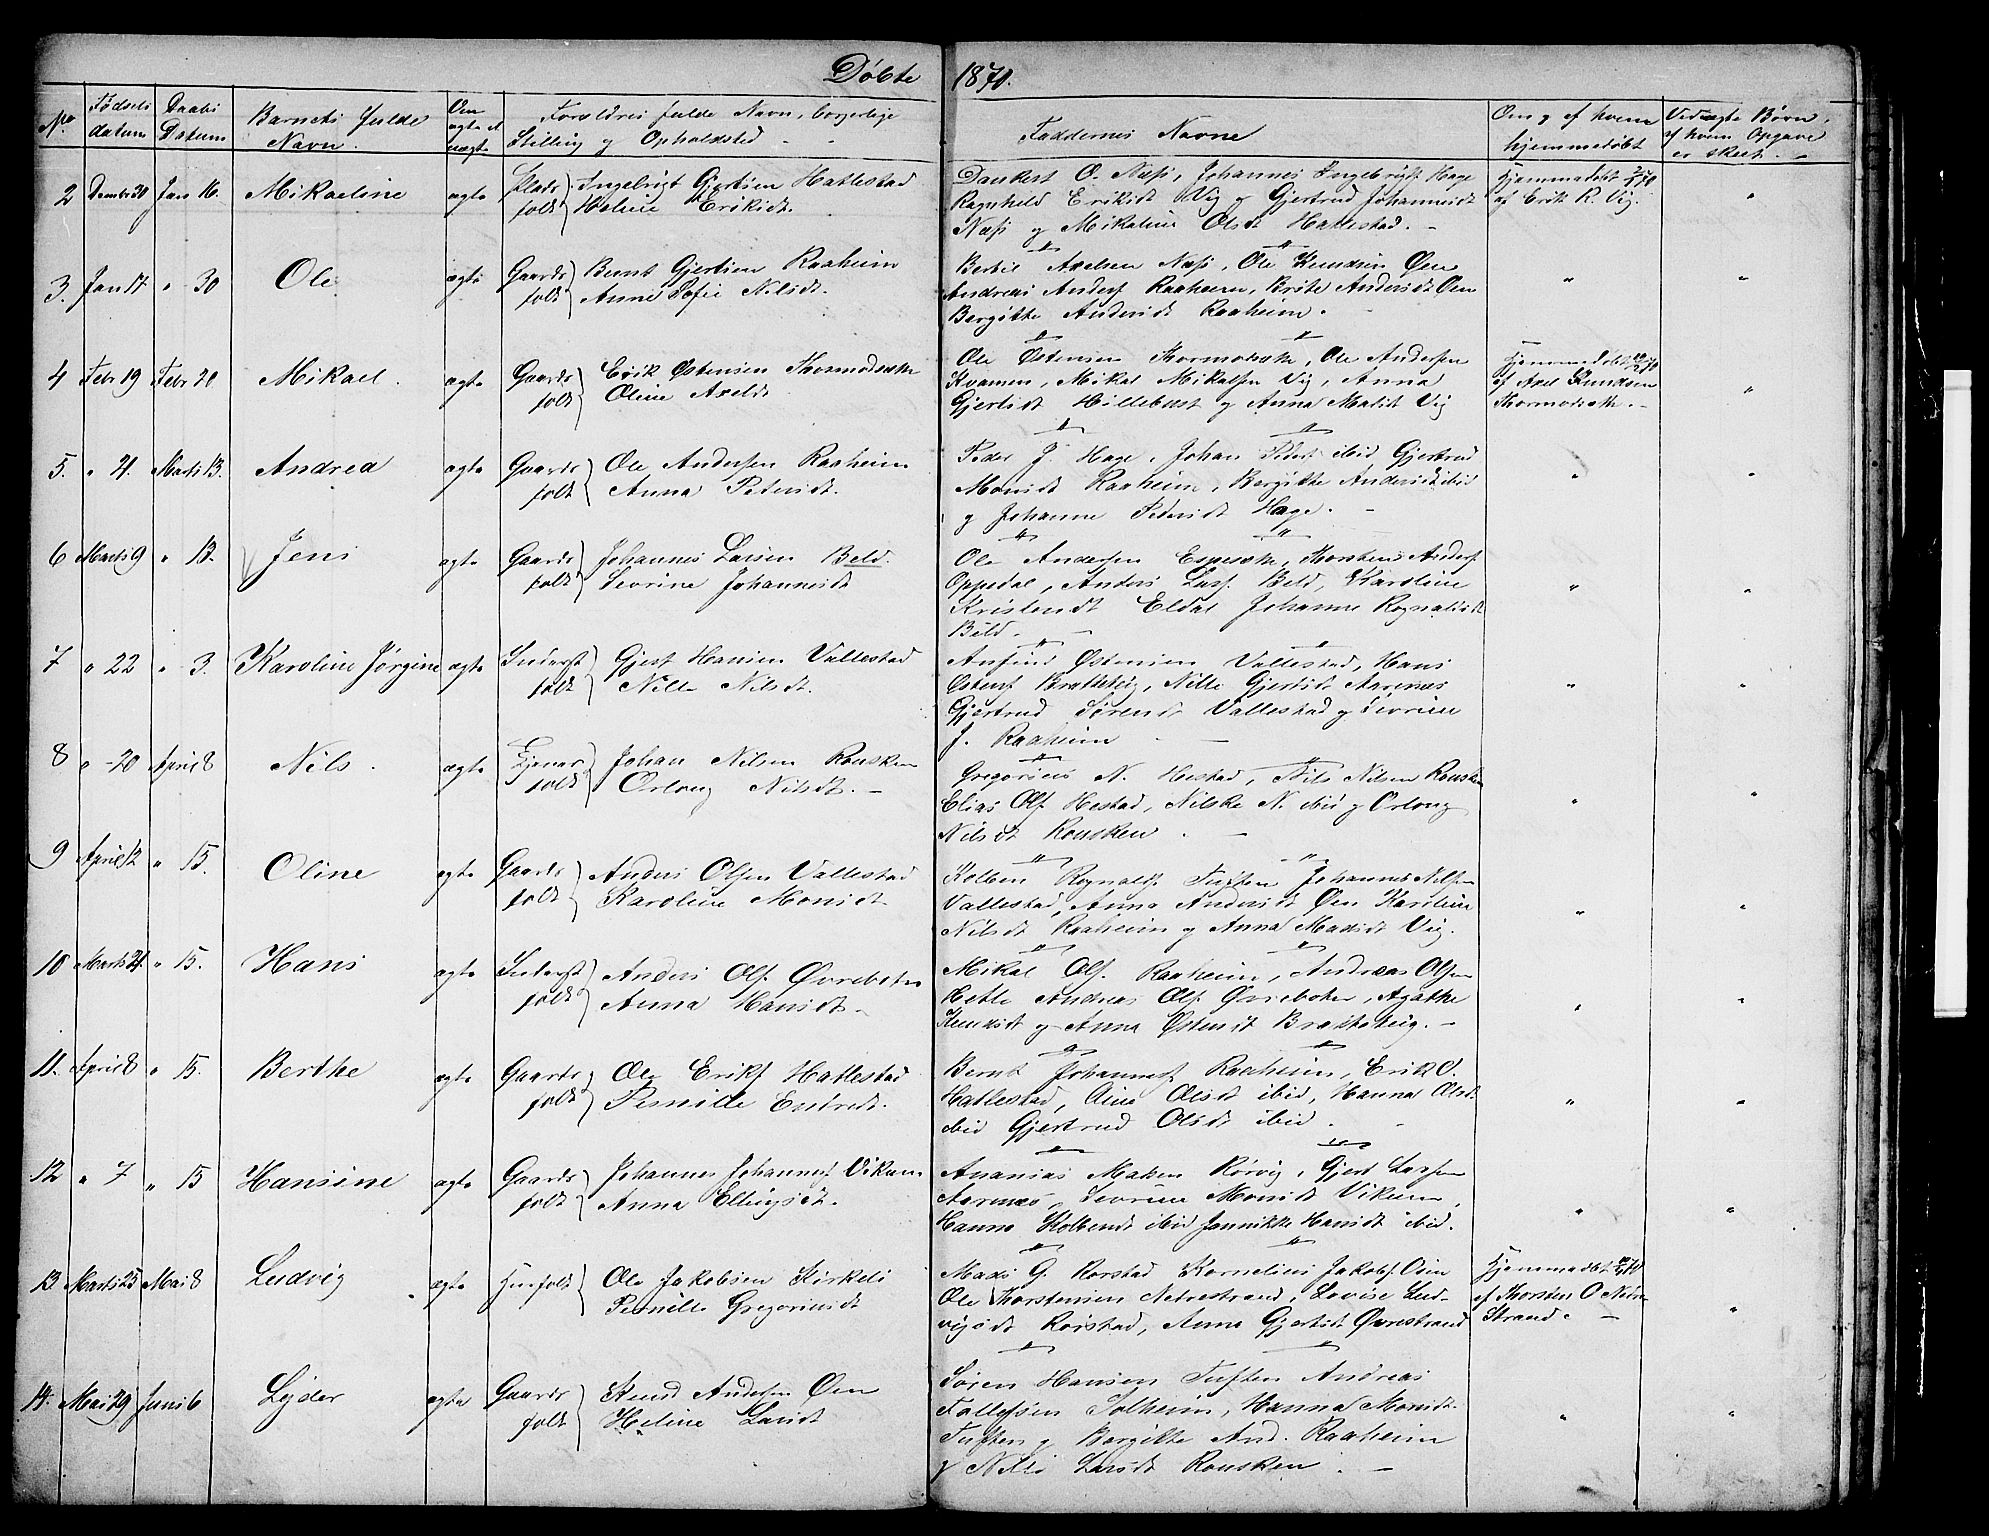 Døbte 1870.
No. Fødsels datum Daabs Datum Barnets fulde Navn. Om ægte el uægte Forældres fulde Navn, borgerlige Stilling og Opholdsted Faddernes Navne Om og af hvem hjemmedøbt Ved uægte Børn, af hvem Opgave er skeet.
2 Decmbr 30 Jan 16. Mikaeline ægte Plads folk Ingebrigt Gjertsen Hatlestad
Heline Eriksdt.
Dankert O. Næss, Johannes Ingebrigts. Hage
Ragnhild Eriksdt Vig og Gjertrud Johannesdt
Næss og Mikaline Olsdt Hatlestad. -
Hjemmedøbt 2/1 70
af Erik R. Vig. "
3. Jan 17 " 30 Ole ægte Gaards folk Bernt Gjertsen Raaheim
Anne Sofie Nilsdt.
Bertil Axelsen Næss, Ole Knudsen Øen
Andreas Anders. Raaheim, Brite Andersdt Øen
Bergitte Andersdt Raaheim.
" "
4 Febr 19 Febr 20. Mikael. ægte Gaards folk Erik Østensen Thormodsæth
Oline Axelsdt
Ole Østensen Thormodsæth, Ole Andersen
Kvamen, Mikal Mikalsen Vig, Anna
Gjertsdt Hillebust og Anna Matsdt Vig
Hjemmedøbt 19/2 70
af Axel Knudsen
Thormodsæth. - "
5. " 21. Marts 13. Andrea ægte Gaards folk Ole Andersen Raaheim
Anna Petersdt.
Peder J. Hage, Johan Peders. ibid Gjertrud
Monsdt Raaheim, Bergitte Andersdt ibid
og Johanne Pedersdt Hage. -
" "
6 Marts 9 " 13. Jens ægte Gaards folk Johannes Larsen Beld.
Sevrine Johannesdt
Ole Andersen Espesæth, Thorsten Anders.
Oppedal, Anders Lars. Beld, Karoline
Kristensdt Eldal Johanne Rognaldsdt
Beld. -
" "
7 " 22 " 3. Karoline Jørgine ægte Inderst folk Gjert Hansen Vallestad
Nille Nilsdt.
Anfind Østensen Vallestad, Hans
Østens. Bratteteig, Nille Gjertsdt Aarenæs
Gjertrud Sørensdt Vallestad og Sevrine
J. Raaheim -
" "
8 " 20 April 8 Nils. ægte Tjener folk Johan Nilsen Rousken
Orloug Nilsdt. -
Gregorius N. Hestad, Nils Nilsen Rousken
Elias Ols. Hestad, Nilske N. ibid og Orloug
Nilsdt Rousken. -
" "
9 April 12 " 15. Oline ægte Gaards folk Anders Olsen Vallestad
Karoline Monsdt
Kolben Rognalds. Tuften Johannes Nilsen
Vallestad, Anna Andersdt Øen Karoline
Nilsdt Raaheim og Anna Madsdt Vig.
" "
10 Marts 21. " 15. Hans ægte Inderst folk Anders Ols. Øvrebøten
Anna Hansdt -
Mikal Ols. Raaheim, Andreas Olsen
Hetle Andreas Ols. Øvrebøten, Agathe
Knudsdt og Anna Østensdt Bratteteig. -
" "
11. April 8 " 15. Berthe ægte Gaards folk Ole Eriks. Hatlestad
Pernille Endredt.
Bernt Johannes. Raaheim, Erik O.
Hatlestad, Oline Olsdt ibid, Hanna Olsdt
ibid Gjertrud Olsdt ibid. -
" "
12 " 7 " 15 Hansine ægte Gaards folk Johannes Johannes. Vikum
Anna Ellingsdt.
Ananias Madsen Rørvig, Gjert Larsen
Aarenæs, Sevrine Monsdt Vikum,
Hanna Kolbensdt ibid Jannikke Hansdt ibid.
" "
13. Marts 25 Mai 8 Ludvig ægte Husfolk Ole Jakobsen Kirkeli
Pernille Gregoriusdt
Mads G. Rørstad Kornelius Jakobs. Osen
Ole Thorstensen Nedrestrand, Lovise Lud-
vigsdt Rørstad, Anna Gjertsdt Øvrestrand
Hjemmedøbt 70
af Thorsten O Nedre-
Strand. - "
14. Mai 29 Juni 6 Lyder ægte Gaards folk Knud Andersen Øen
Heline Larsdt
Søren Hansen Tuften Andreas
Tollefsen Solheim, Hanna Monsdt.
Tuften og Bergitte And. Raaheim
og Nille Larsdt Rousken. -
" "